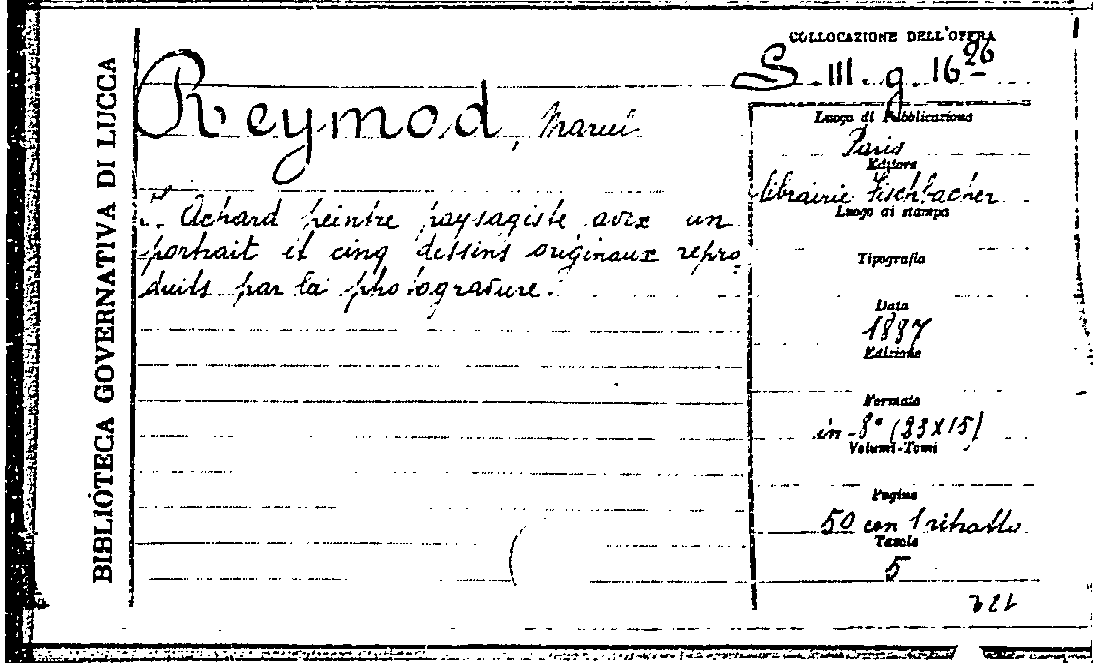 BIBLIOTECA GOVERNATIVA DI LUCCA
COLLOCAZIONE DELL'OPERA
S. III. g. 16 26
Reymod, Marcel
Achard peintre paysagiste avec un
portrait et cinq dessins originaux repro-
duits par la photogravure.
Luogo di Pubblicazione
Paris
Editore
librairie Fischbacher
Luogo di stampa
Tipografia
Data
1887
Edizione
Formato
in-8° (23x15)
Volumi-Tomi
Pagine
50 con 1 ritratto
Tavole
5